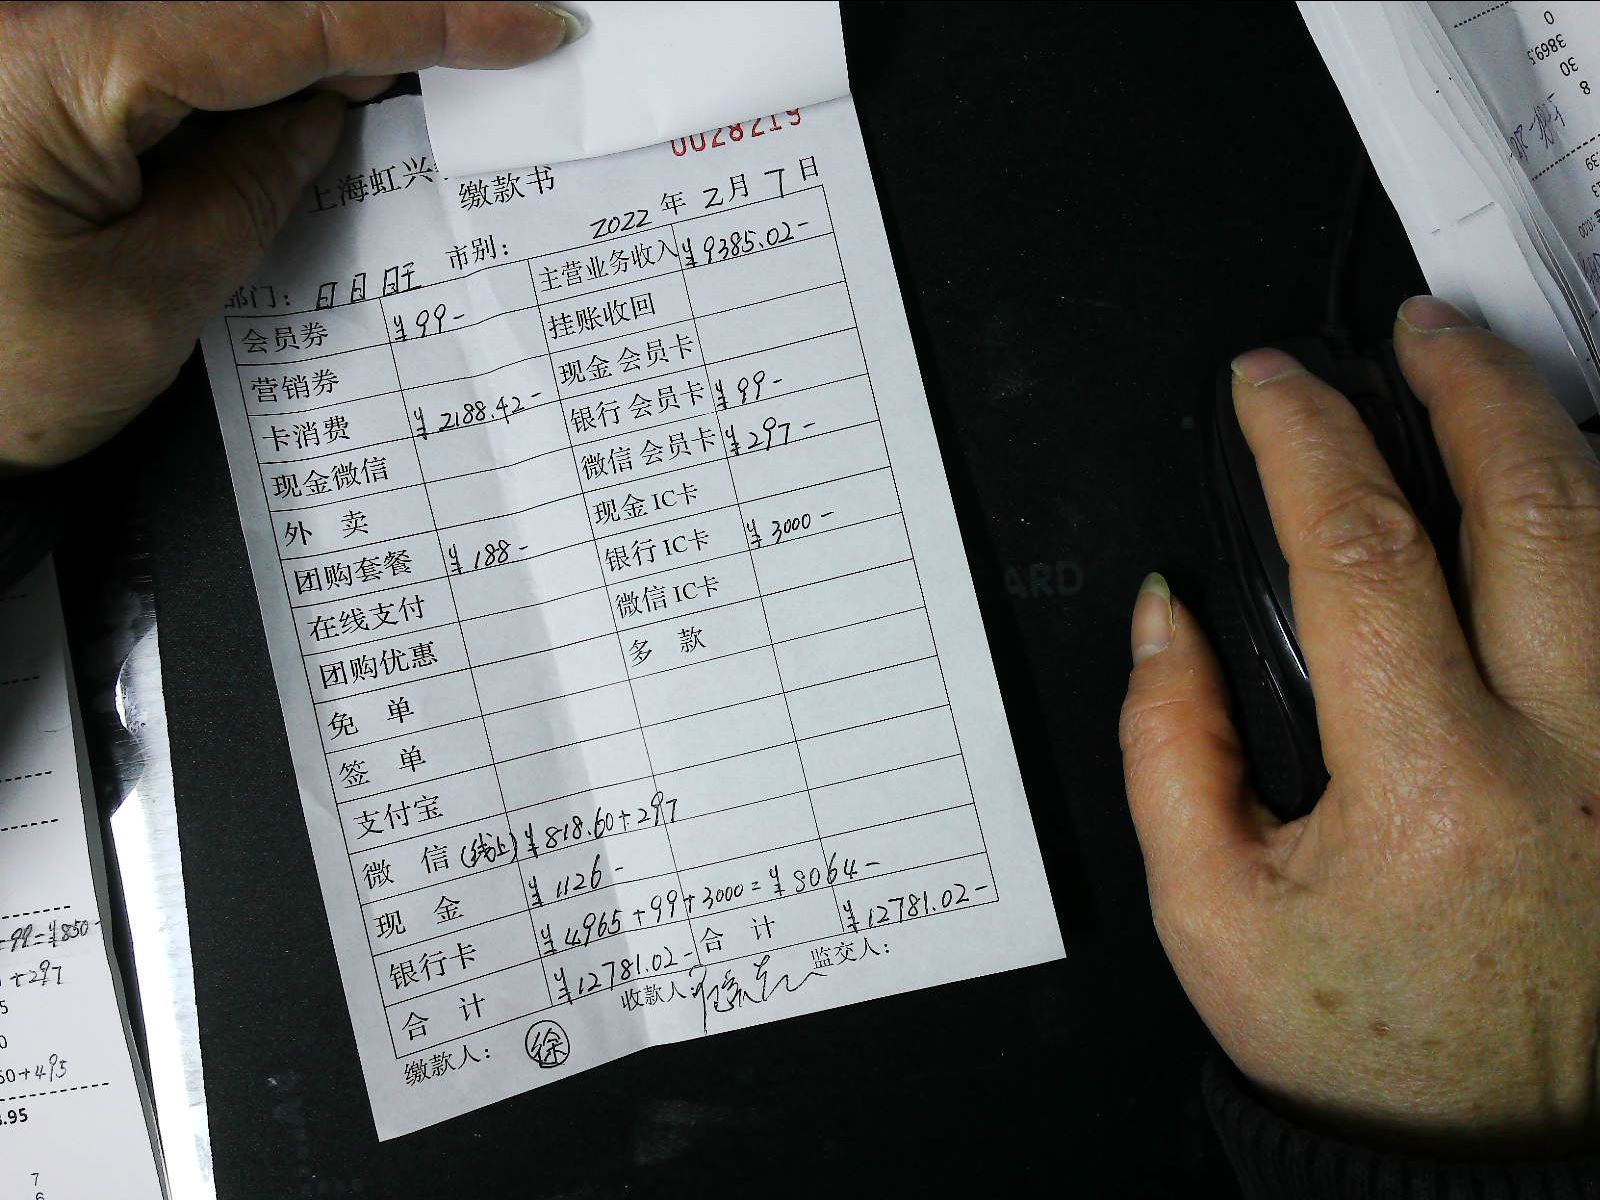 0028219
上海虹兴
缴款书
2022 年 2 月 7 日
部门： 日日旺 市别：
会员券 ¥99- 主营业务收入 ¥9385.02-
营销券 挂账收回
卡消费 ¥2188.42- 现金 会员卡
现金微信 银行 会员卡 ¥99-
外 卖 微信 会员卡 ¥297-
团购套餐 ¥188- 现金 IC卡
在线支付 银行 IC卡 ¥3000-
团购优惠 微信 IC卡
免 单 多 款
签 单
支付宝
微 信 (线上) ¥818.60+297
现 金 ¥1126-
银行卡 ¥4965+99+3000=¥8064-
合 计 ¥12781.02- 合 计 ¥12781.02-
缴款人： 徐 收款人： 监交人：
ARD
0
3869.5
30
8
+99=¥850-
+297
50+495
7
6